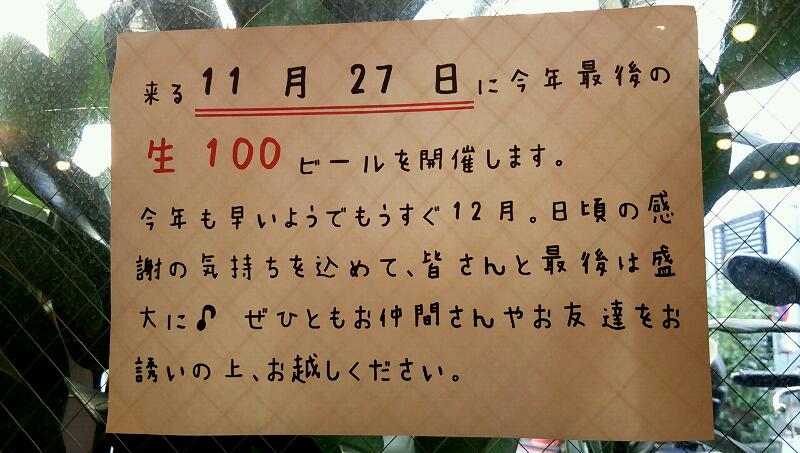 来る11月27日に今年最後の
生100ビールを開催します。
今年も早いようでもうすぐ12月。日頃の感
謝の気持ちを込めて、皆さんと最後は盛
大に♪ ぜひともお仲間さんやお友達をお
誘いの上、お越しください。